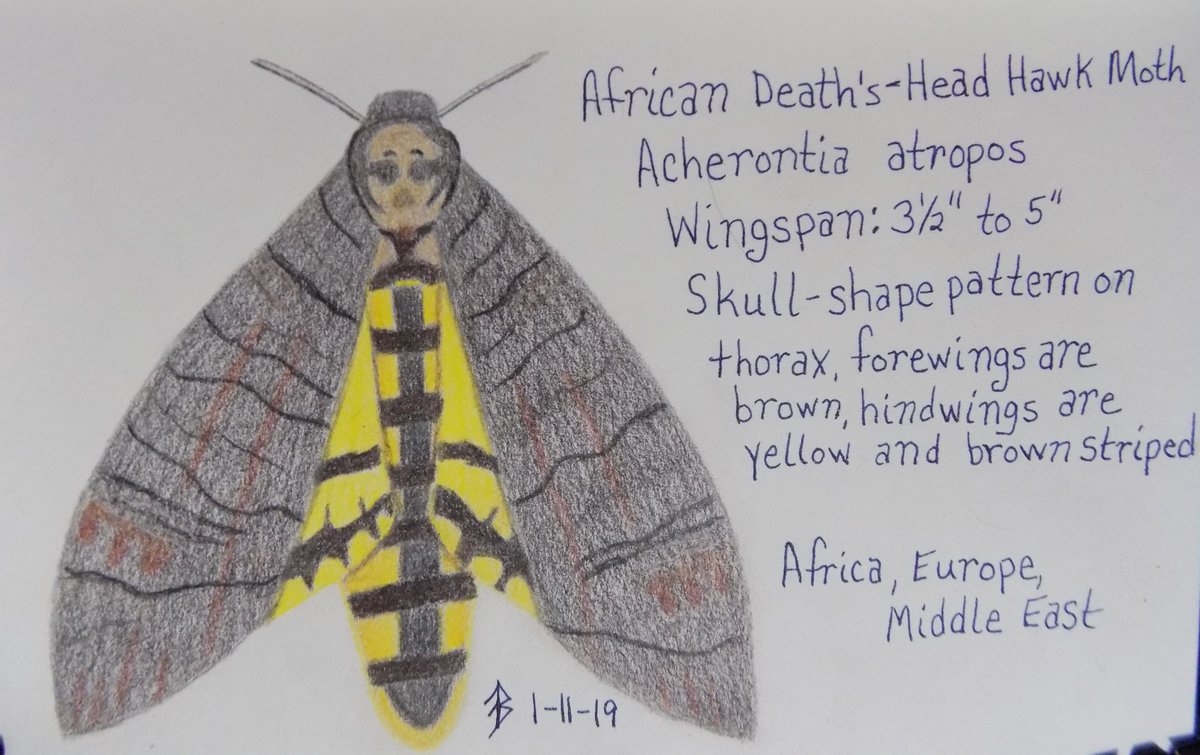 African Death's-Head Hawk Moth
Acherontia atropos
Wingspan: 3½" to 5"
Skull-shape pattern on
thorax, forewings are
brown, hindwings are
yellow and brown striped
Africa, Europe,
Middle East
1-11-19